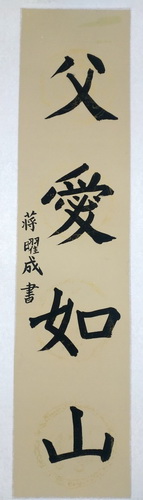 父愛如山
蔣曜成書